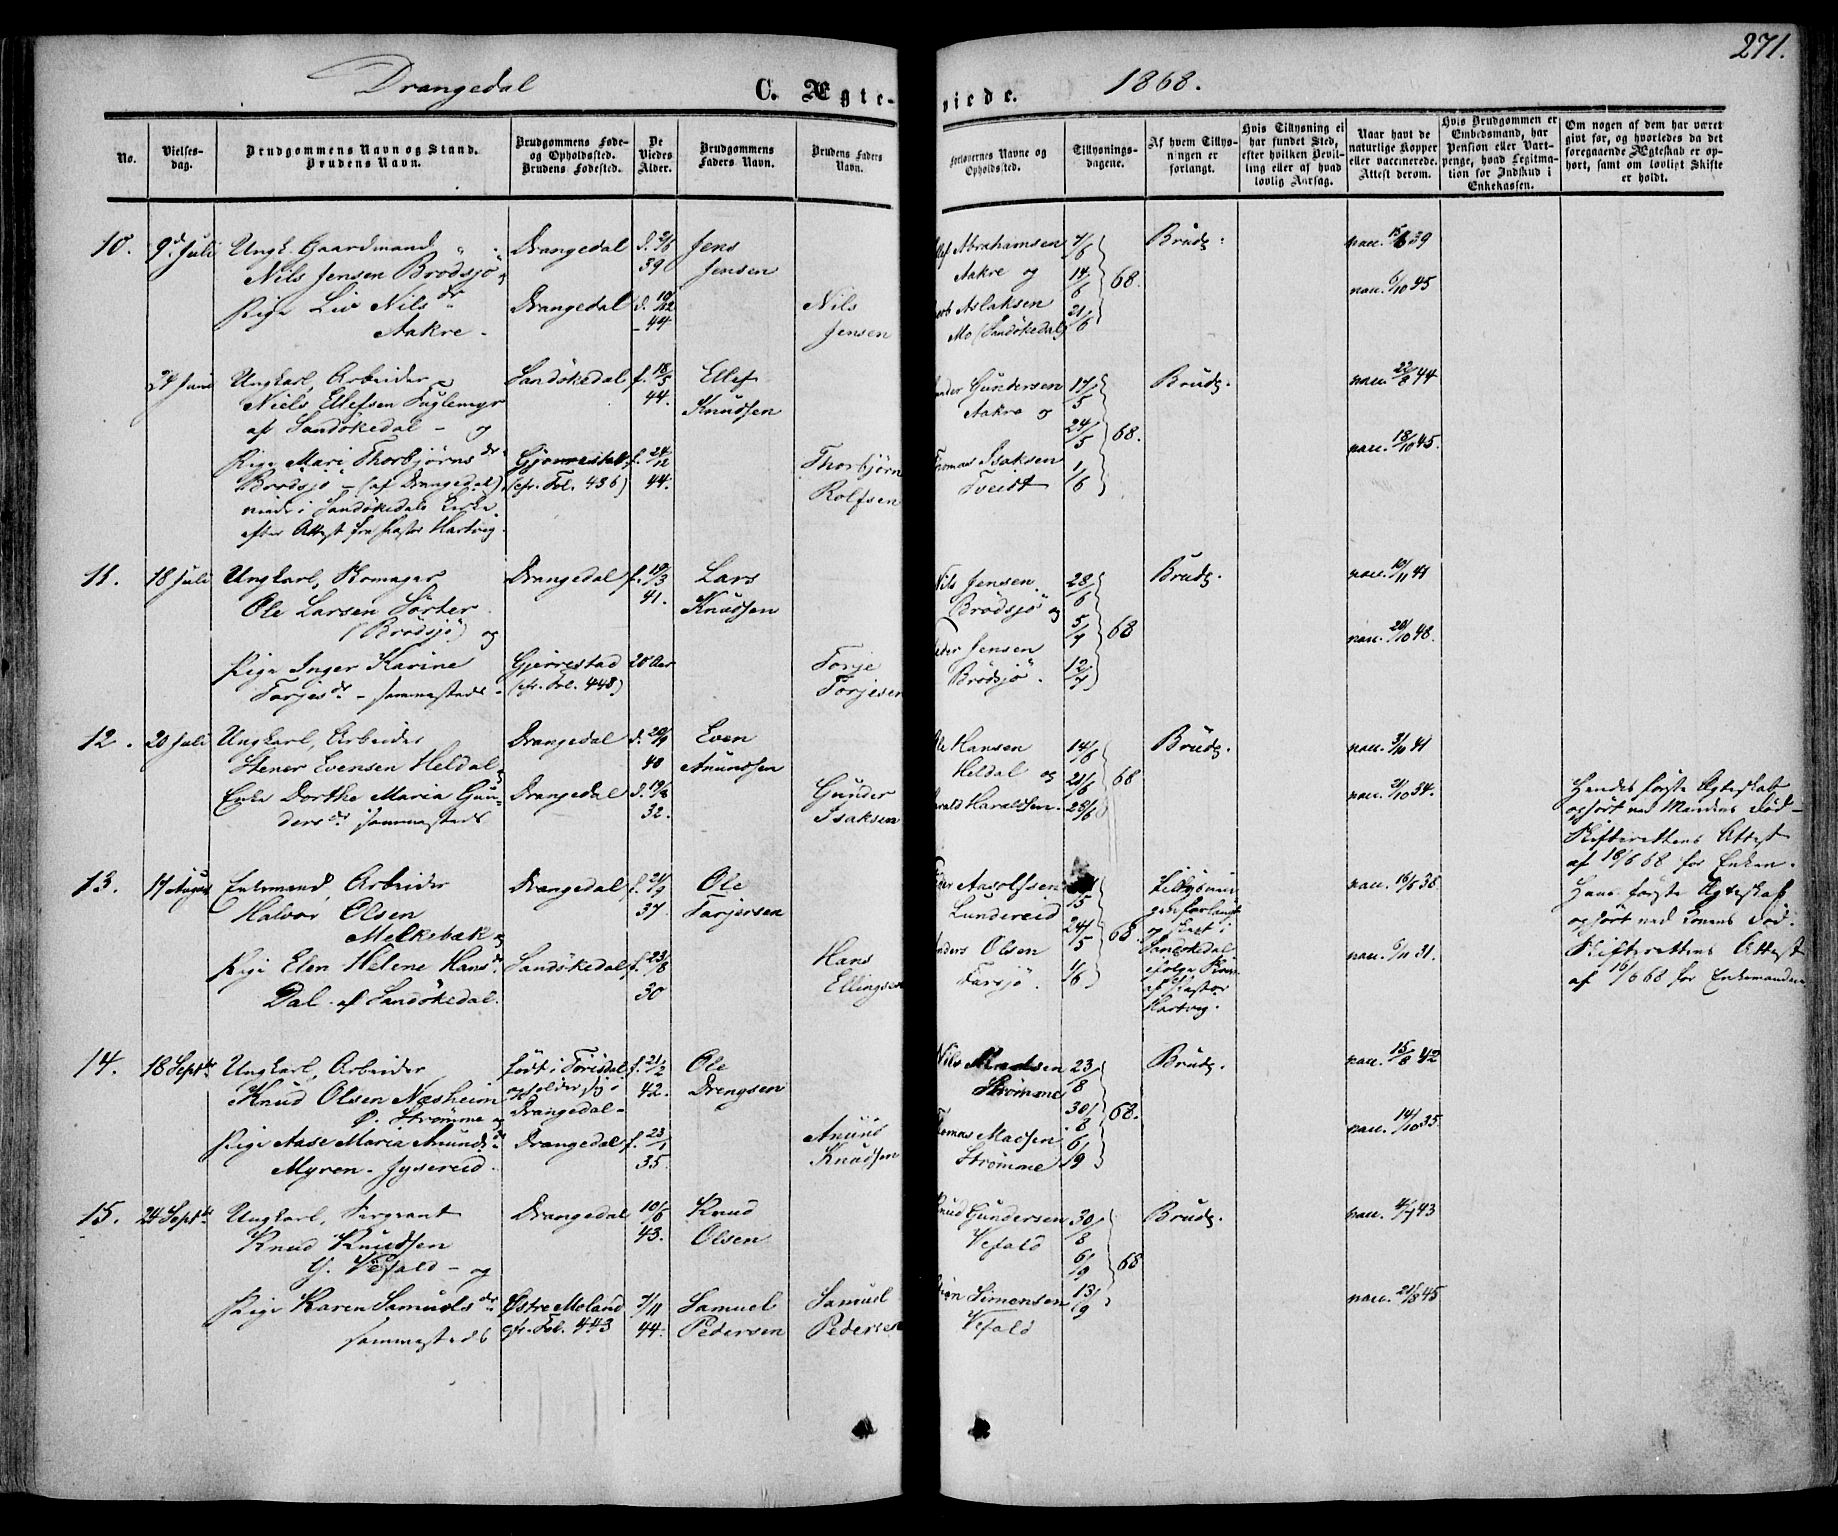 271.
Drangedal C. Ægteviede. 1868.
No.
Vielses-
dag.
Brudgommens Navn og Stand.
Brudens Navn.
Brudgommens Føde-
og Opholdssted.
Brudens Fødested.
De
Viedes
Alder.
Brudgommens
Faders Navn.
Brudens Faders
Navn.
Forlovernes Navne og
Opholdssted.
Tillysnings-
dagene.
Af hvem Tillys-
ningen er
forlangt.
Hvis Tillysning ei
har fundet Sted,
efter hvilken Bevil-
ling eller af hvad
lovlig Aarsag.
Naar havt de
naturlige Kopper
eller vaccinerede.
Attest derom.
Hvis Brudgommen er
Embedsmand, har
Pension eller Vart-
penge, hvad Legitima-
tion for Indskud i
Enkekassen.
Om nogen af dem har været
givt før, og hvorledes da det
foregaaende Ægteskab er op-
hørt, samt om lovligt Skifte
er holdt.
10. 9d Juli Ungk. Gaardmand Drangedal d. 2/6 39 Jens Jensen
Nils Jensen Brødsjø og
Pige Liv Nilsdr Drangedal 44 Nils Jensen
Aakre
Abrahamsen
Aakre og
Aslaksen
Mo (Sandøkedal)
7/6 14/6 21/6 68. Brudg. vacc. 39
vacc. 6/10 45
24 Juni Ungkarl, Arbeider Sandøkedal f. 18/5 44. Ellef Knudsen
Niels Ellefsen Fuglemyr
af Sandøkedal - og
Pige Mari Thorbjørnsdr Gjerrestad f. 24/12 44. Thorbjørn Rolfsen
Brødsjø - (af Drangedal) (cfr. Fol. 436)
viede i Sandøkedals Kirke
efter Attest fra Pastor Hartvig.
Gundersen
Aakre og
Thomas Isaksen
Tveidt
17/5 24/5 1/6 68. Brudg. vacc. 22/8 44
vacc. 18/10 45.
11. 18 Juli Ungkarl, Skomager Drangedal f. 19/3 41. Lars Knudsen
Ole Larsen Sørter
(Brødsjø) og
Pige Inger Karine Gjerrestad 20 Aar Torje Torjesen
Torjesdr - sammesteds - (cfr. Fol. 448)
Nils Jensen
Brødsjø og
Peder Jensen
Brødsjø.
28/6 5/7 12/7 68 Brudg. vacc. 10/11 41
vacc. 20/10 48.
12. 20 Juli Ungkarl, Arbeider Drangedal d. 20/9 40 Even Anundsen
Stener Evensen Heldal og
Enke Dorthe Maria Gun- Drangedal d. 19/8 32. Gunder Isaksen
dersdr sammesteds
Ole Hansen
Heldal og
Harald Haraldsen.
14/6 21/6 28/6 68 Brudg. vacc. 3/10 41
vacc. 2/10 34.
Hendes første Ægteskab
ophørt ved Mandens Død -
Skifterettens Attest
af 18/6 68 for Enken.
13. 17 August Enkemand Arbeider Drangedal f. 21/9 37 Ole Tarjersen
Halvor Olsen
Melkebæk og
Pige Elen Helene Hansdr Sandøkedal f. 23/8 30 Hans Ellingsen
Dal - af Sandøkedal.
Aasolfsen
Lundereid
Anders Olsen
Farsjø.
24/5 1/6 68. Tillysnin-
gen forlangt
og skeet i
Sandøkedal
ifølge
af Pastor
Hartvig.
vacc. 16/6 38
vacc. 6/11 31.
Hans første Ægteskab
ophørt ved Konens Død.
Skifterettens Attest
af 16/6 68 for Enkemanden
14. 18 Septbr Ungkarl, Arbeider født i Tørisdal f. 21/2 42. Ole Drengsen
Knud Olsen Næsheim opholder sig i
P. Strømme og Drangedal -
Pige Aase Maria Anundsdr Drangedal f. 23/1 35. Anund Knudsen
Myren - Jysereid.
Nils Madsen
Strømme
Thomas Madsen
Strømme
23/8 30/8 6/9 68. Brudg. vacc. 15/8 42
vacc. 14/10 35
15. 24 Septbr Ungkarl, Sergeant Drangedal 10/6 43. Knud Olsen
Knud Knudsen
Y. Vefald - og
Pige Karen Samuelsdr Østre Moland 7/11 44. Samuel Pedersen Samuel Pedersen
sammesteds cfr. Fol. 443
Knud Gundersen
Vefald
Simonsen
Vefald
30/8 6/9 13/9 68 Brudg. vacc. 4/7 43
vacc. 21/8 45